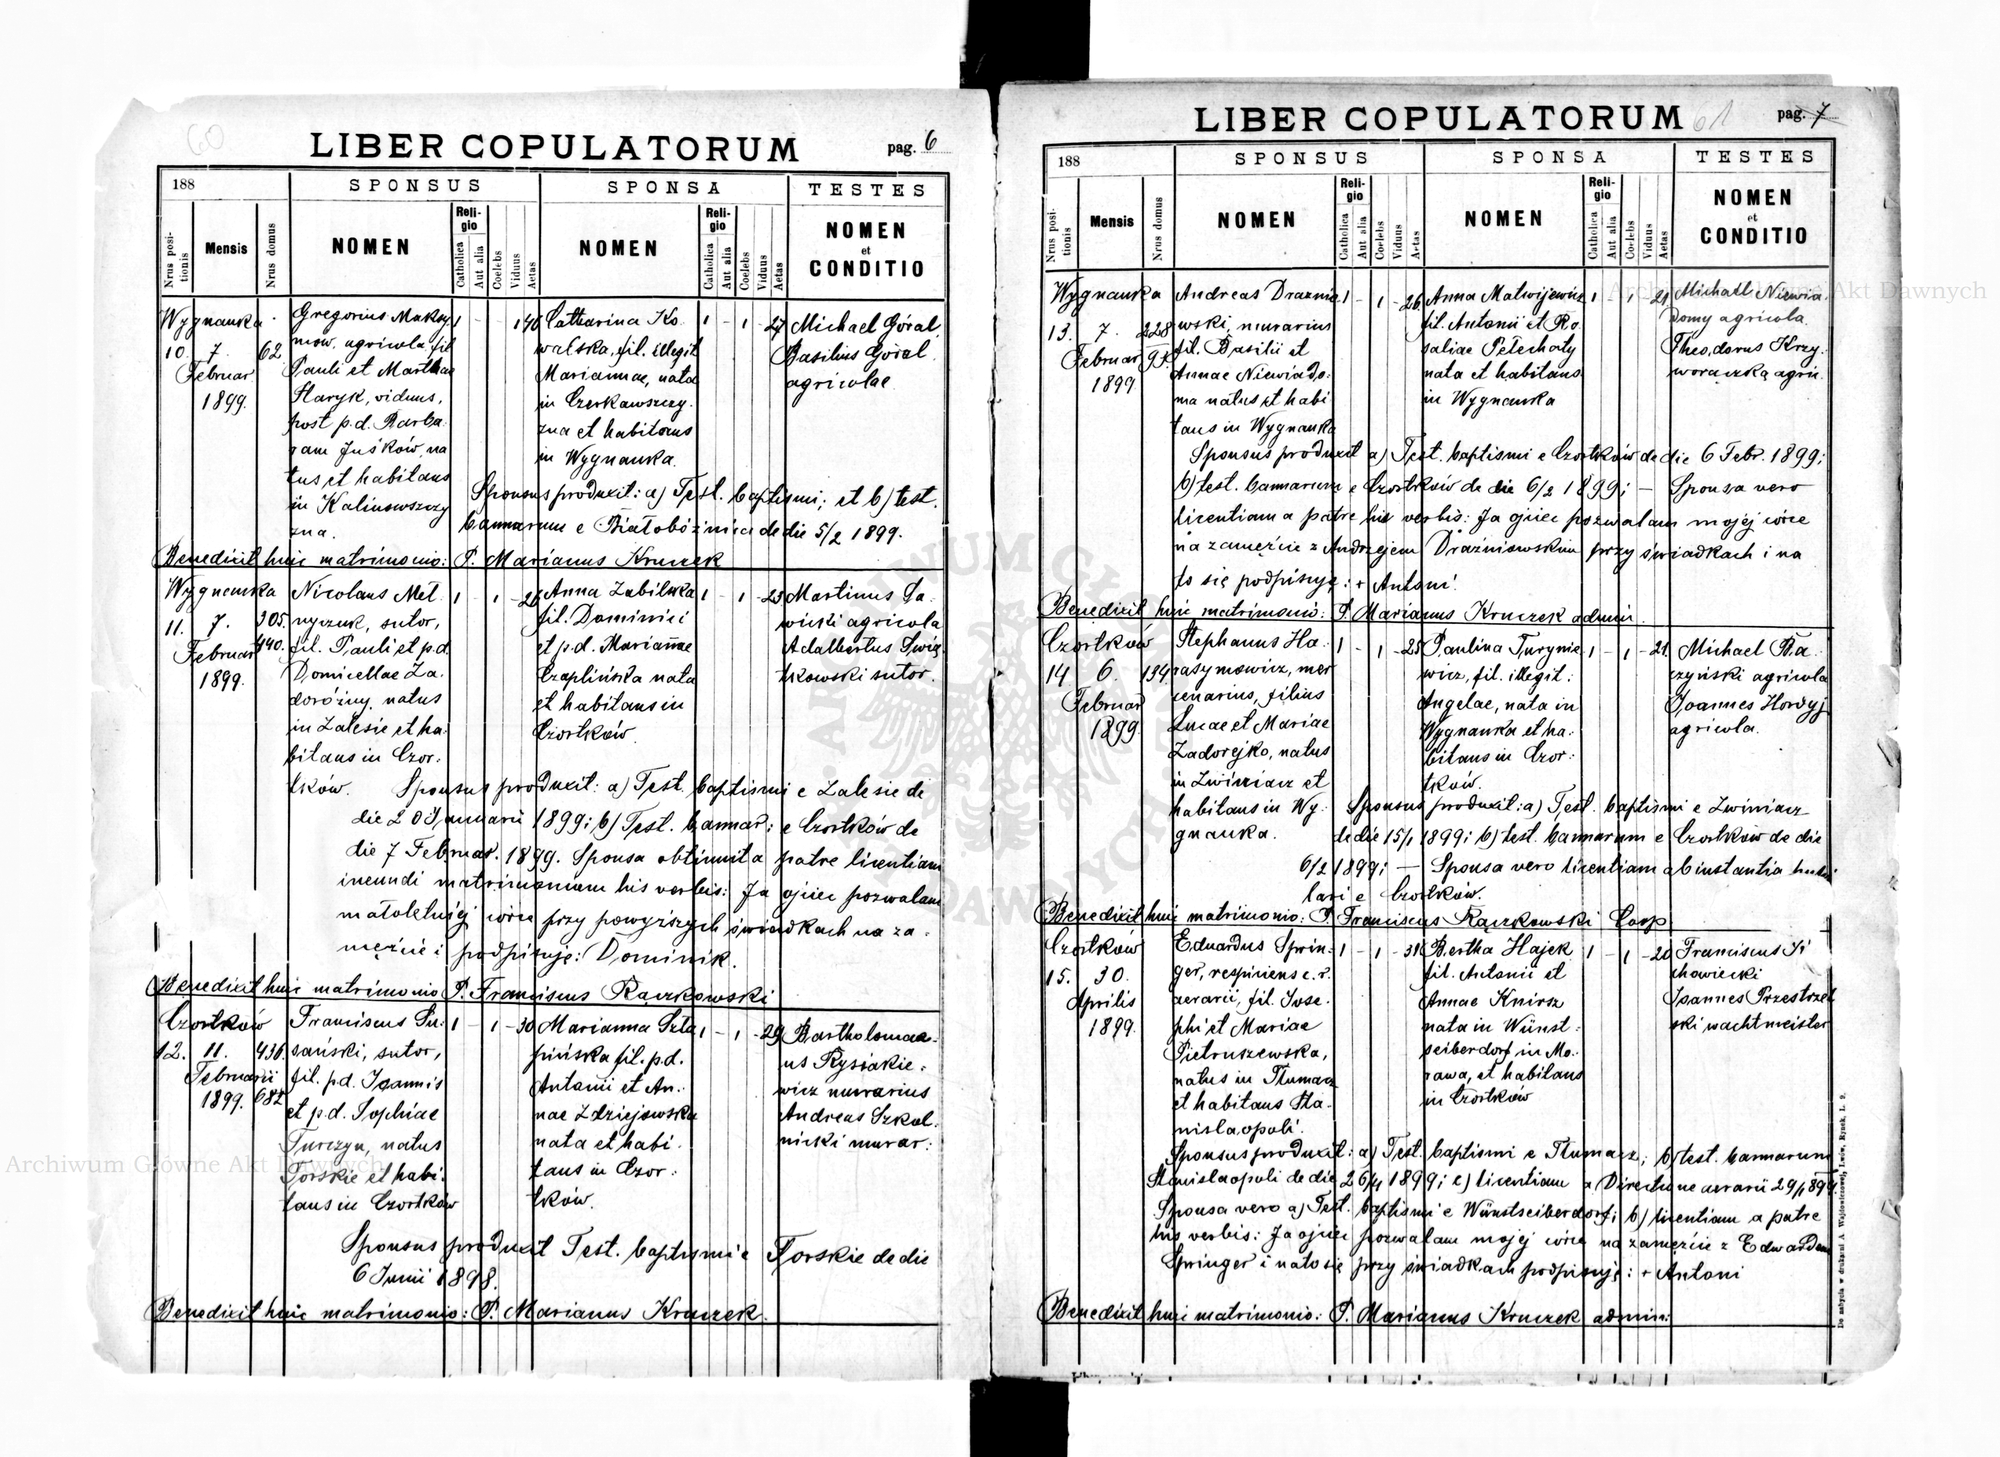 60
LIBER COPULATORUM
pag. 6
188
SPONSUS
SPONSA
TESTES
Nrus positionis
Mensis
Nrus domus
NOMEN
Religio
Catholica
Aut alia
Coelebs
Viduus
Aetas
NOMEN
Religio
Catholica
Aut alia
Coelebs
Viduus
Aetas
NOMEN
et
CONDITIO
Wygnanka
10. 7. 62
Februar
1899.
Gregorius Maksy
mow. agricola, fil
Pauli et Marthae
Haryk, viduus,
post p.d. Barba
ram Juśków, na
tus et habitans
in Kalinowszczy
zna.
1 - - 1 46
Catharina Ko
walska, fil. illegit
Mariannae, nata
in Czerkawszczy
zna et habitans
in Wygnanka.
1 - 1 - 27
Michael Góral
Basilius Góral
agricolae
Sponsus produxit: a) Test. baptismi; et b) test.
bannarum e Białobóżnica de die 5/2 1899.
Benedixit huic matrimonio: P. Marianus Kruczek
Wygnanka
11. 7. 305.
Februar 440.
1899.
Nicolaus Mel
nyczuk, sutor,
fil. Pauli et p.d.
Domicellae Za
dorożny, natus
in Zalesie et ha
bitans in Czor:
tków.
1 - 1 - 26
Anna Zabilska
fil. Dominici
et p.d. Mariannae
Czaplińska nata
et habitans in
Czortków.
1 - 1 - 23
Martinus Sa
wicki agricola
Adalbertus Świą
tkowski sutor.
Sponsus produxit: a) Test. baptismi e Zalesie de
die 20 Januarii 1899; b) Test. bannar: e Czortków de
die 7 Februar. 1899. Sponsa obtinuit a patre licentiam
ineundi matrimonium his verbis: Ja ojciec pozwalam
małoletniej córce przy powyższych świadkach na za-
mężcie i podpisuję: Dominik.
Benedixit huic matrimonio P. Franciscus Rączkowski
Czortków
12. 11. 436.
Februarii
1899. 682
Franciscus Su:
sański, sutor,
fil. p.d. Joannis
et p.d. Sophiae
Turczyn, natus
Torskie et habi:
tans in Czortków
1 - 1 - 30
Marianna Szta
pińska fil. p.d.
Antonii et An:
nae Zdziejowska
nata et habi:
tans in Czor:
tków.
1 - 1 - 29
Bartholomae-
us Rysiakie-
wicz murarius
Andreas Szkol
nicki murar:
Sponsus produxit Test. baptismi e Torskie de die
6 Junii 1898.
Benedixit huic matrimonio: P. Marianus Kruczek.
61
LIBER COPULATORUM
pag. 7
188
SPONSUS
SPONSA
TESTES
Nrus positionis
Mensis
Nrus domus
NOMEN
Religio
Catholica
Aut alia
Coelebs
Viduus
Aetas
NOMEN
Religio
Catholica
Aut alia
Coelebs
Viduus
Aetas
NOMEN
et
CONDITIO
Wygnanka
13. 7. 228
Februar 93.
1899
Andreas Draźnio
wski, murarius
fil. Basilii et
Annae Niewiado:
ma natus et habi
tans in Wygnanka
1 - 1 - 26
Anna Matwijewicz
fil. Antonii et Ro
saliae Petechaty
nata et habitans
in Wygnanka
1 1 - 21
Michael Niewia
domy agricola.
Theodorus Krzy:
woraczka agric.
Sponsus produxit a) Test. baptismi e Czortków de die 6 Febr. 1899;
b) test. bannarum e Czortków de die 6/2 1899; — Sponsa vero
licentiam a patre his verbis: Ja ojciec pozwalam mojej córce
na zamężcie z Andrzejem Draźniowskim przy świadkach i na
to się podpisuję: + Antoni
Benedixit huic matrimonio: P. Marianus Kruczek admin.
Czortków
14 6. 134
Februar
1899
Stephanus Ha:
rasymowicz, mer
cenarius, filius
Lucae et Mariae
Zadorejko, natus
in Zwiniacz et
habitans in Wy:
gnanka.
1 - 1 - 25
Paulina Turynie
wicz, fil. illegit:
Angelae, nata in
Wygnanka et ha:
bitans in Czor:
tków.
1 - 1 - 21.
Michael Ra:
czyński agricola
Joannes Hordyj
agricola.
Sponsus produxit: a) Test. baptismi e Zwiniacz
de die 15/1 1899; b) test. bannarum e Czortków de die
6/2 1899; — Sponsa vero licentiam ab instantia
lari e Czortków.
Benedixit huic matrimonio: P. Franciscus Rączkowski Coop
Czortków
15. 30.
Aprilis
1899.
Eduardus Sprin:
ger, respiciens c.r.
aerarii, fil. Jose:
phi et Mariae
Pietruszewska,
natus in Tłumacz
et habitans Sta:
nislaopoli.
1 - 1 - 31
Bertha Hajek
fil. Antonii et
Annae Knirsz
nata in Wünst:
seiberdorf, in Mo:
rawa, et habitans
in Czortków
1 - 1 - 20
Franciscus Si
chowiecki
Joannes Przestrzel
ski wachtmeister
Sponsus produxit: a) Test. baptismi e Tłumacz; b) test. bannarum
Stanislaopoli de die 26/4 1899; c) licentiam a Directione aerarii 29/1 899
Sponsa vero a) Test. baptismi e Wünstseiberdorf; b) licentiam a patre
his verbis: Ja ojciec pozwalam mojej córce na zamężcie z Edwardem
Springer i na to się przy świadkach podpisuję: + Antoni
Benedixit huic matrimonio: P. Marianus Kruczek admin:
Do nabycia w drukarni A. Wajdowiczowej, Lwów, Rynek, L. 9.
Archiwum Główne Akt Dawnych
Archiwum Główne Akt Dawnych